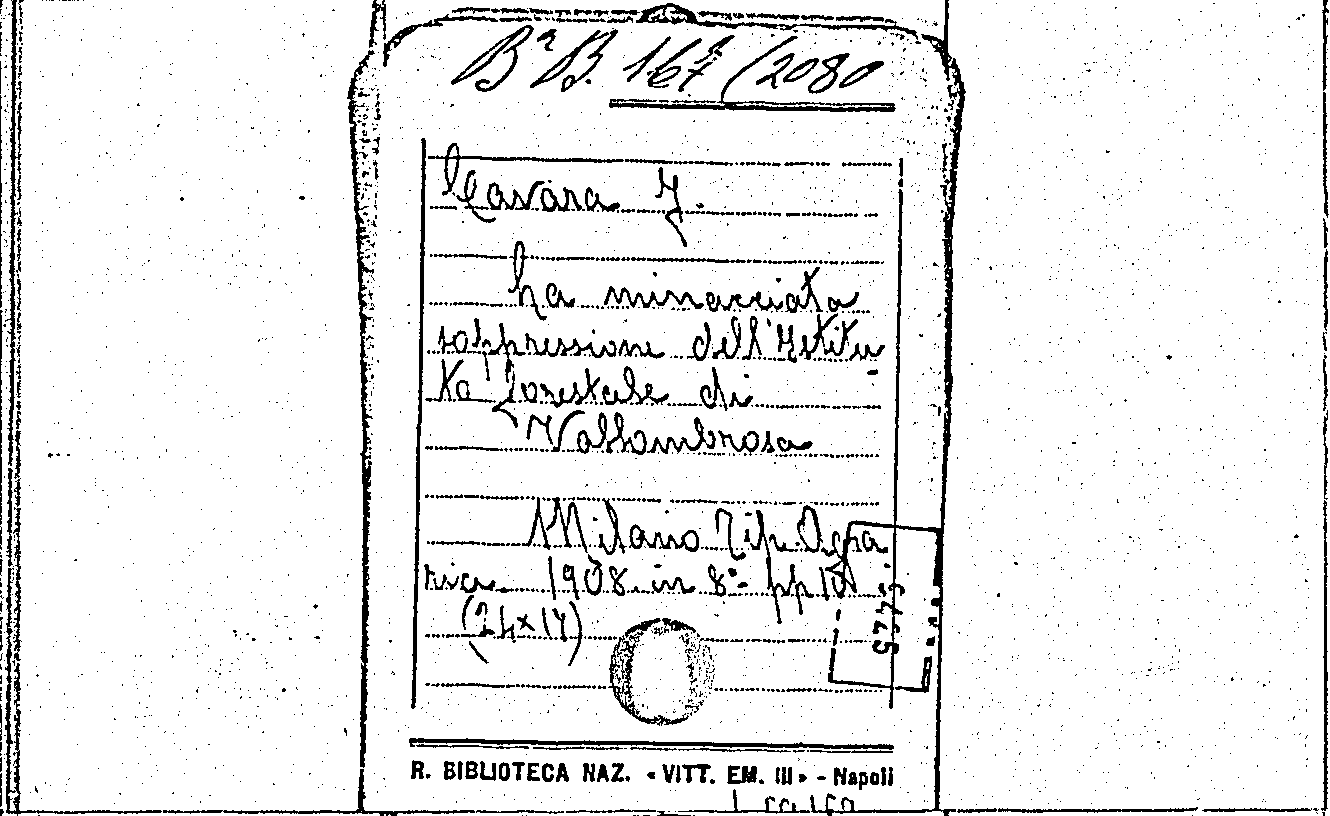 Bª B. 167 /2080
Cavara F.
La minacciata
soppressione dell'Istitu-
to forestale di
Vallombrosa
Milano Tip. Agra
ria 1908. in 8°- pp 10
(24×17)
R. BIBLIOTECA NAZ. «VITT. EM. III» - Napoli